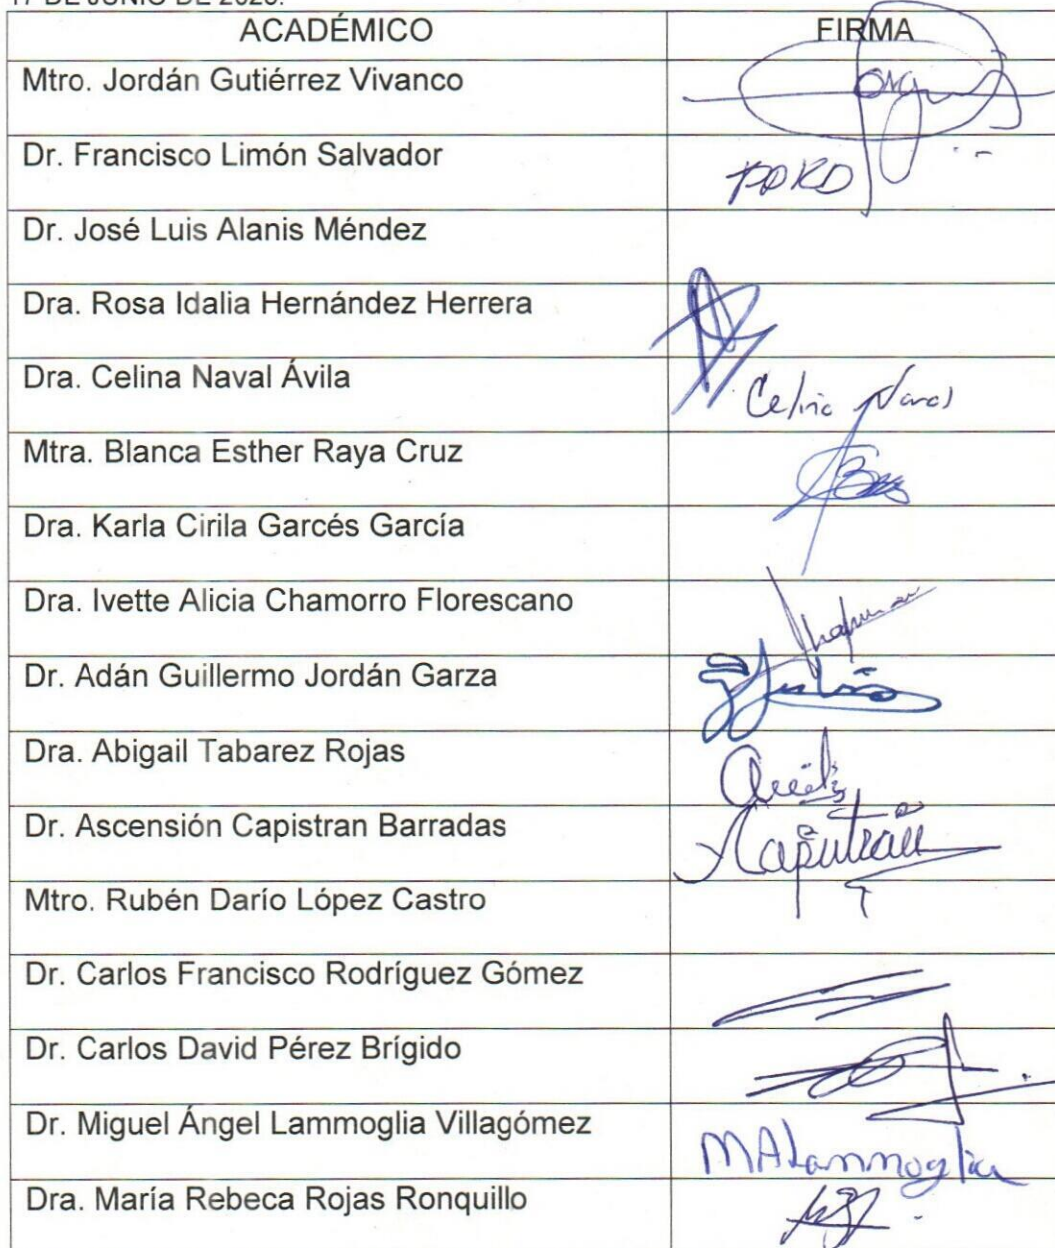 17 DE JUNIO DE
ACADÉMICO FIRMA
Mtro. Jordán Gutiérrez Vivanco
Dr. Francisco Limón Salvador
Dr. José Luis Alanis Méndez
Dra. Rosa Idalia Hernández Herrera
Dra. Celina Naval Ávila Celina Naval
Mtra. Blanca Esther Raya Cruz
Dra. Karla Cirila Garcés García
Dra. Ivette Alicia Chamorro Florescano
Dr. Adán Guillermo Jordán Garza
Dra. Abigail Tabarez Rojas
Dr. Ascensión Capistran Barradas
Mtro. Rubén Darío López Castro
Dr. Carlos Francisco Rodríguez Gómez
Dr. Carlos David Pérez Brígido
Dr. Miguel Ángel Lammoglia Villagómez MALammoglia
Dra. María Rebeca Rojas Ronquillo